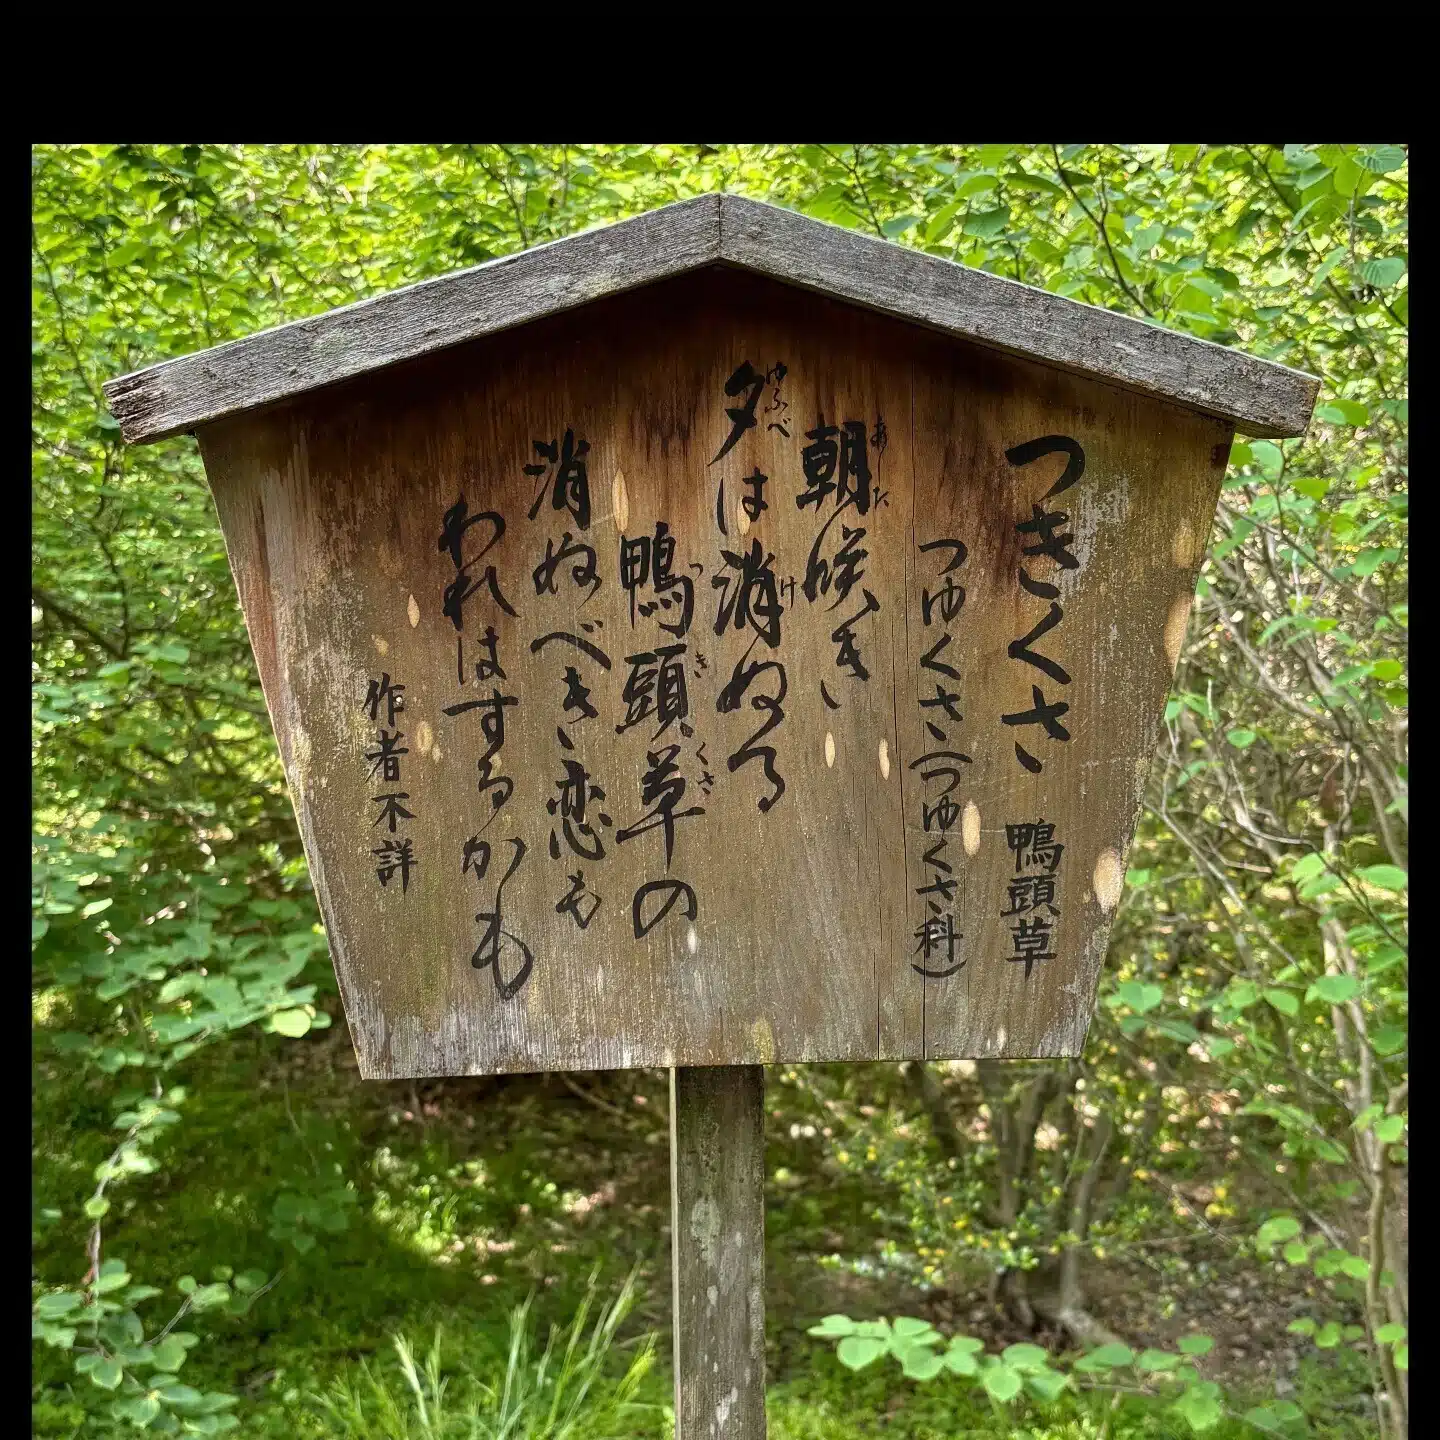 つきくさ 鴨頭草
つゆくさ(つゆくさ科)
朝咲き
夕は消ぬる
鴨頭草の
消ぬべき恋も
われはするかも
作者不詳
あした
ゆふべ
け
つきくさ